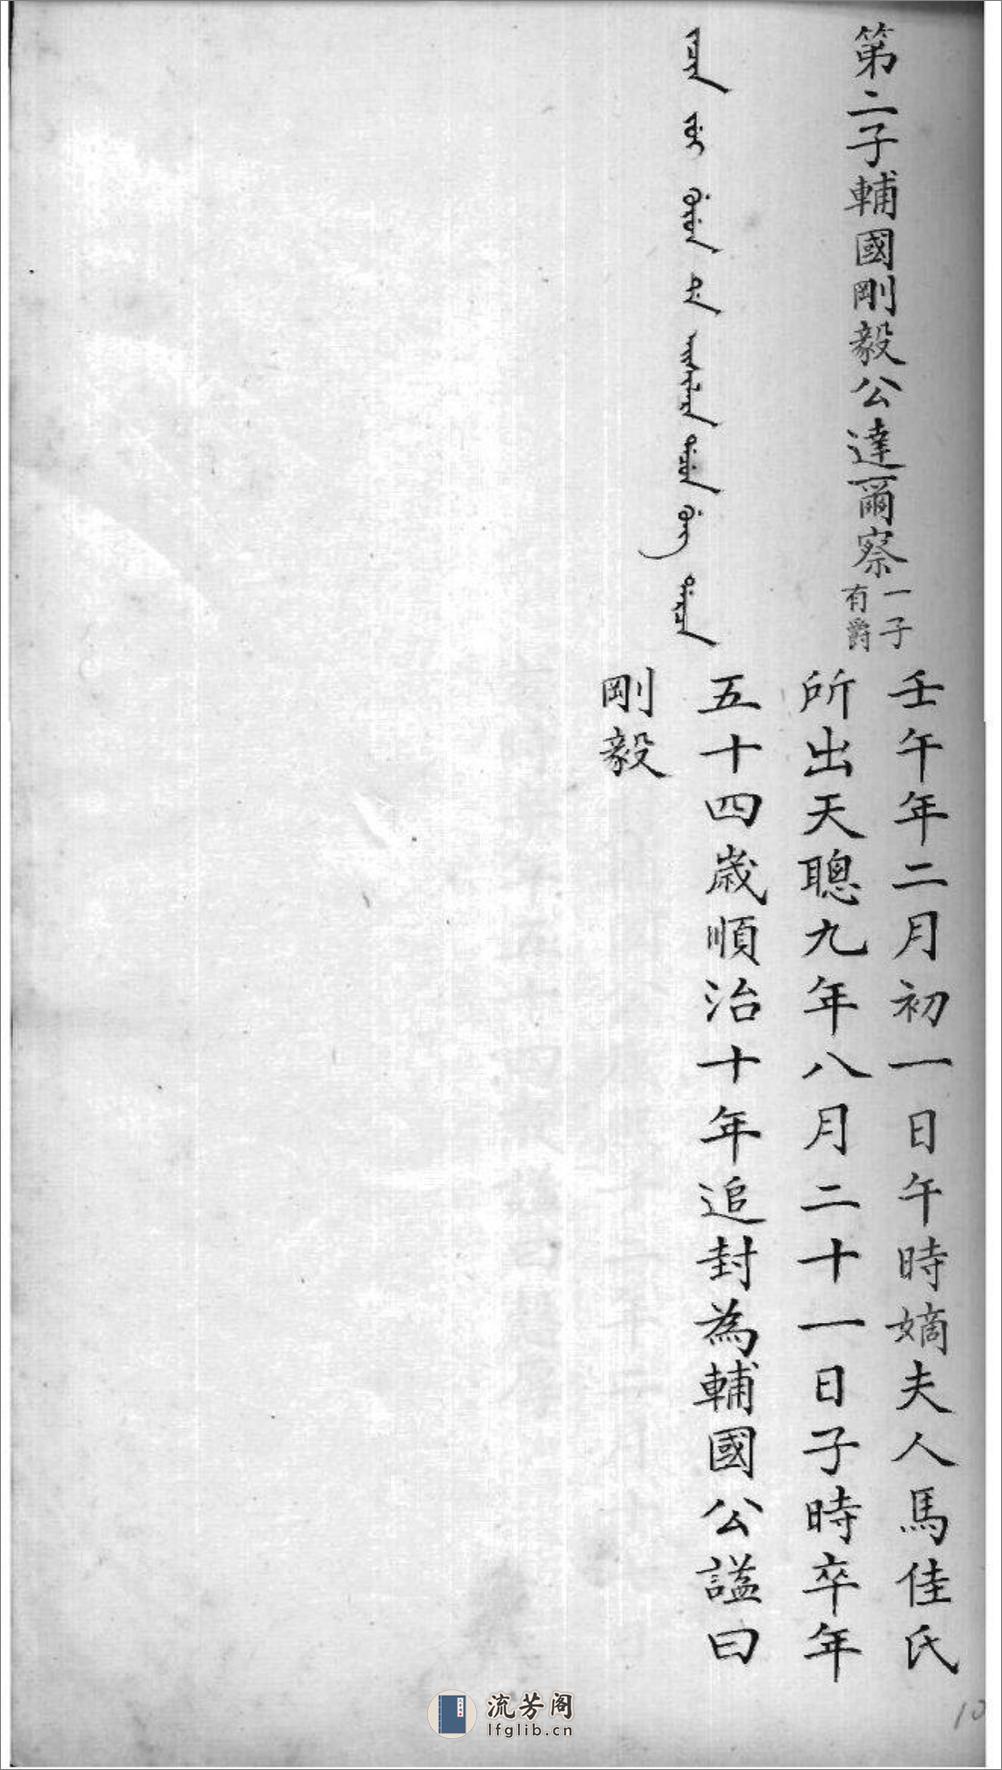 第二子輔國剛毅公達爾察
一子
有爵
壬午年二月初一日午時嫡夫人馬佳氏
所出天聰九年八月二十一日子時卒年
五十四歲順治十年追封為輔國公謚曰
剛毅
10
流芳阁
lfglib.cn